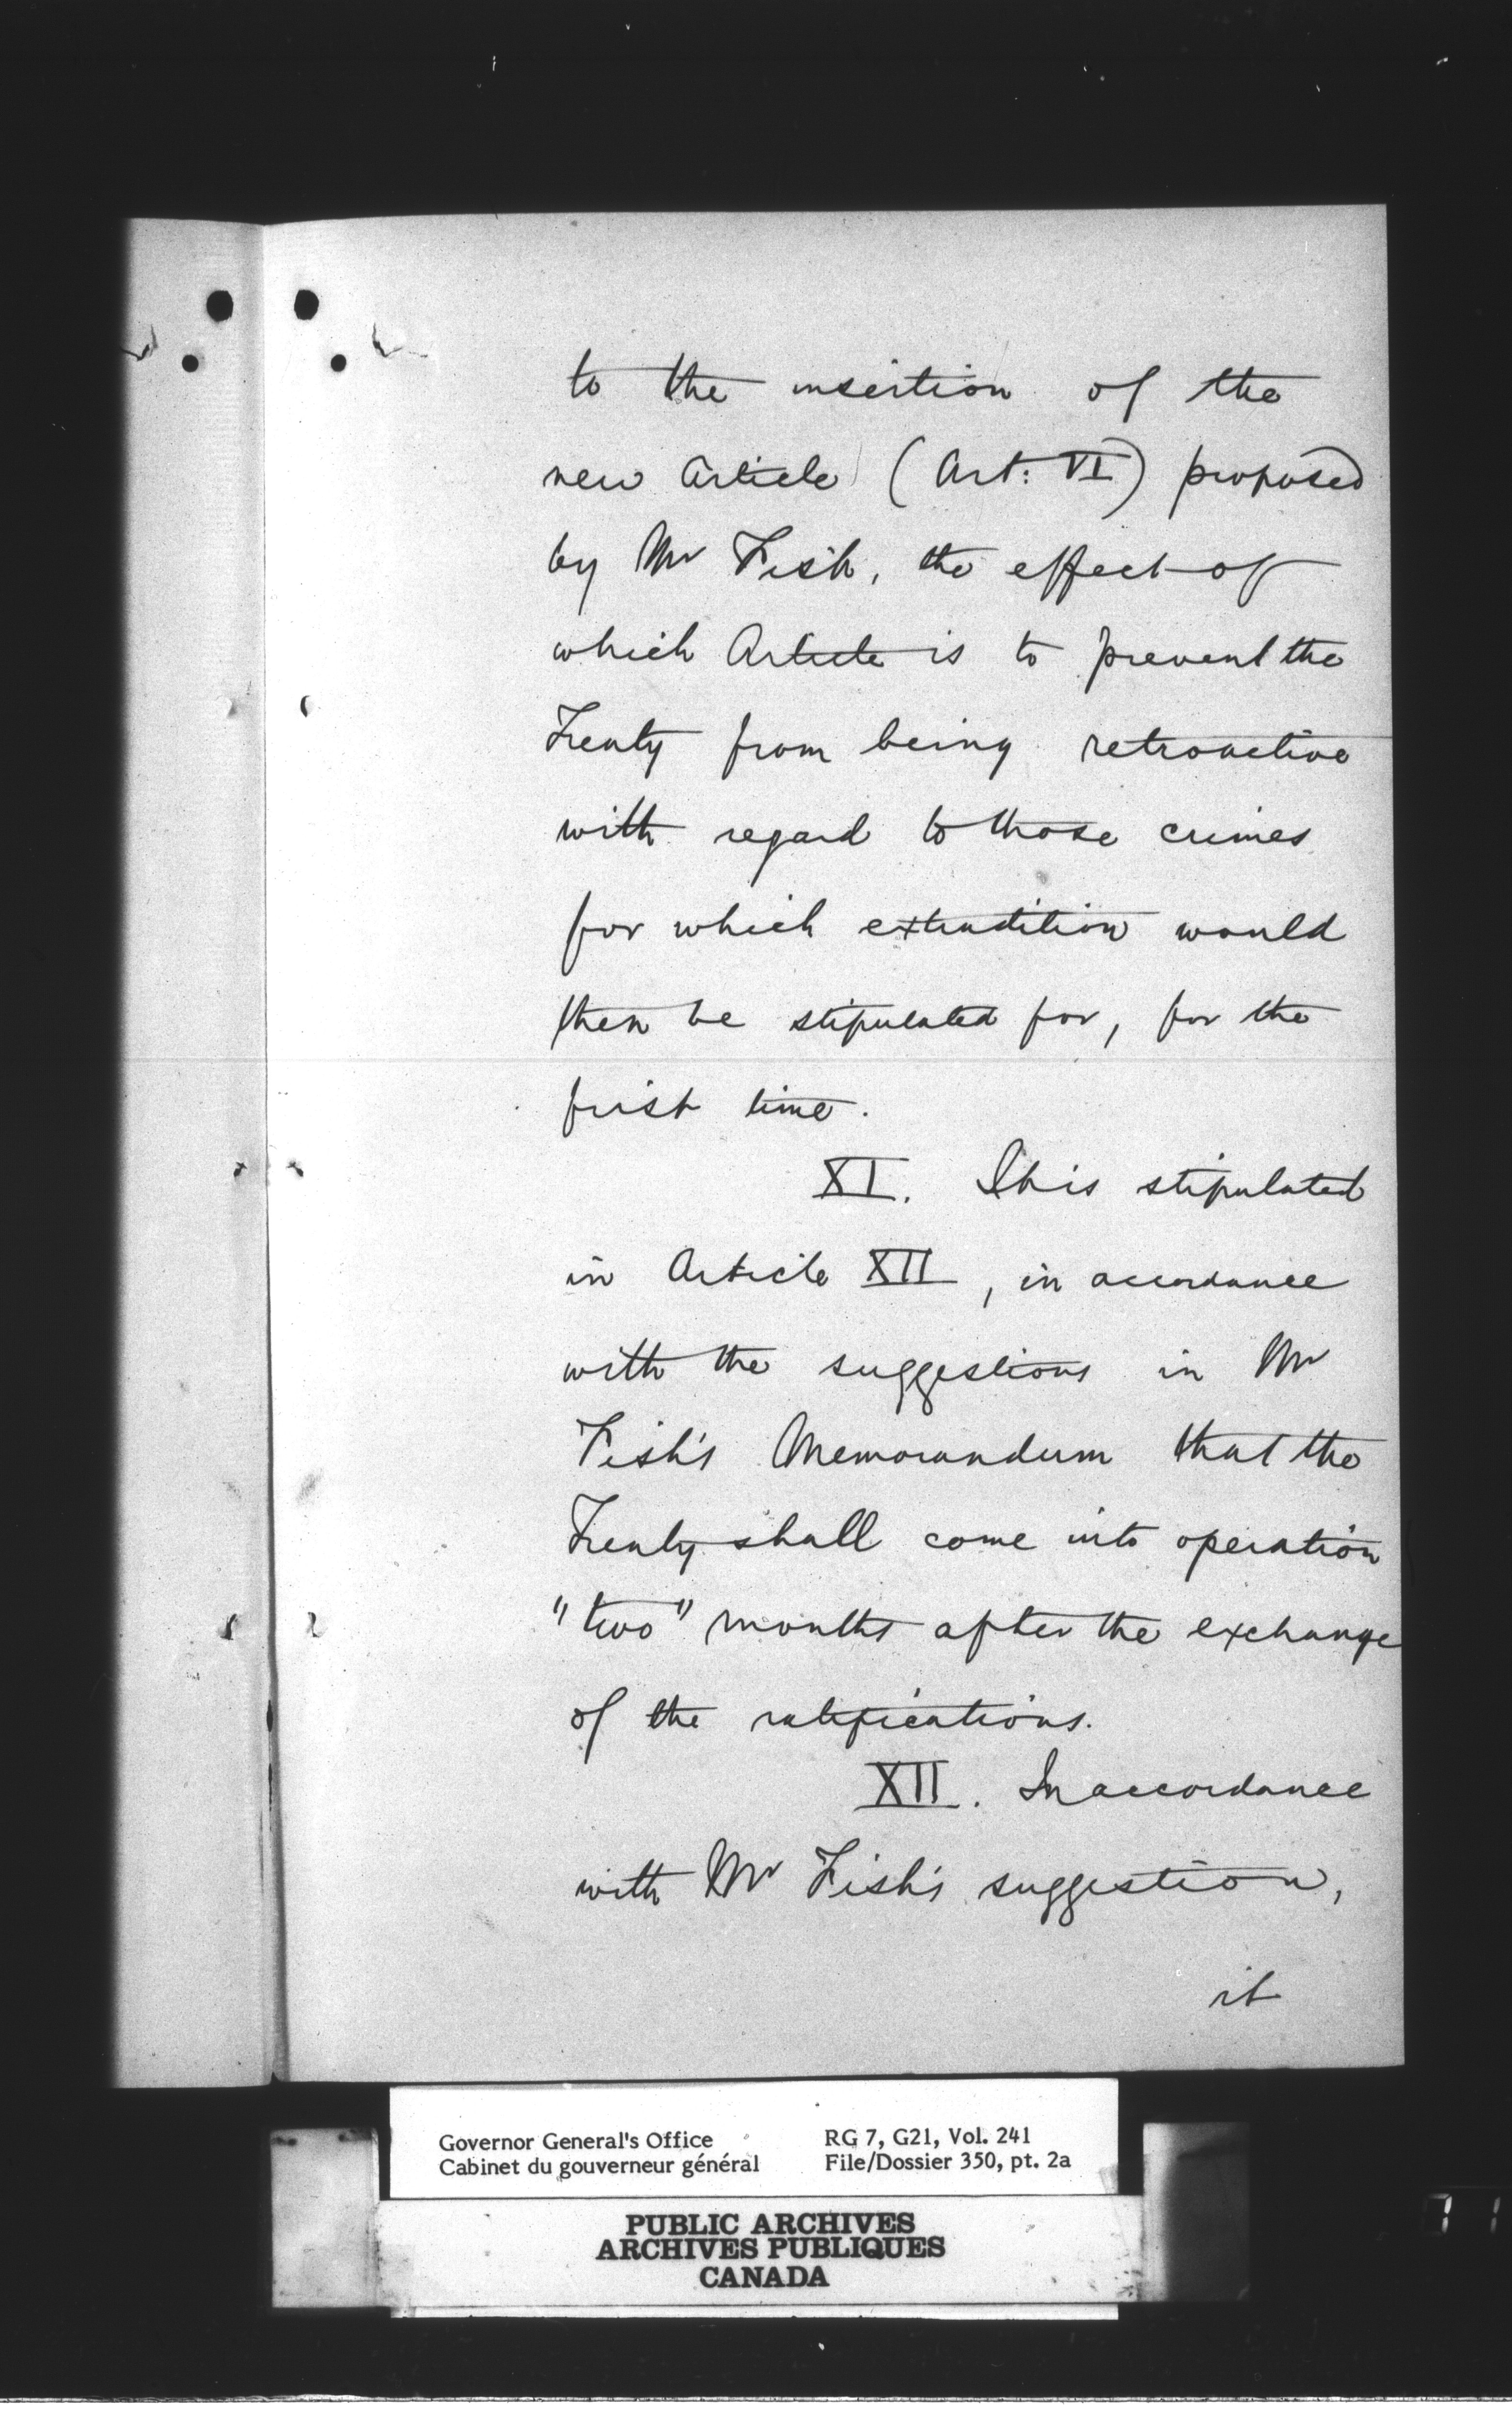 to the insertion of the
new Article (Art: VI) proposed
by Mr Fish, the effect of
which Article is to prevent the
Treaty from being retroactive
with regard to those crimes
for which extradition would
then be stipulated for, for the
first time.
XI. It is stipulated
in Article XII, in accordance
with the suggestions in Mr
Fish's Memorandum that the
Treaty shall come into operation
"two" months after the exchange
of the ratifications.
XII. In accordance
with Mr Fish's suggestion,
it
Governor General's Office
Cabinet du gouverneur général
RG 7, G21, Vol. 241
File/Dossier 350, pt. 2a
PUBLIC ARCHIVES
ARCHIVES PUBLIQUES
CANADA